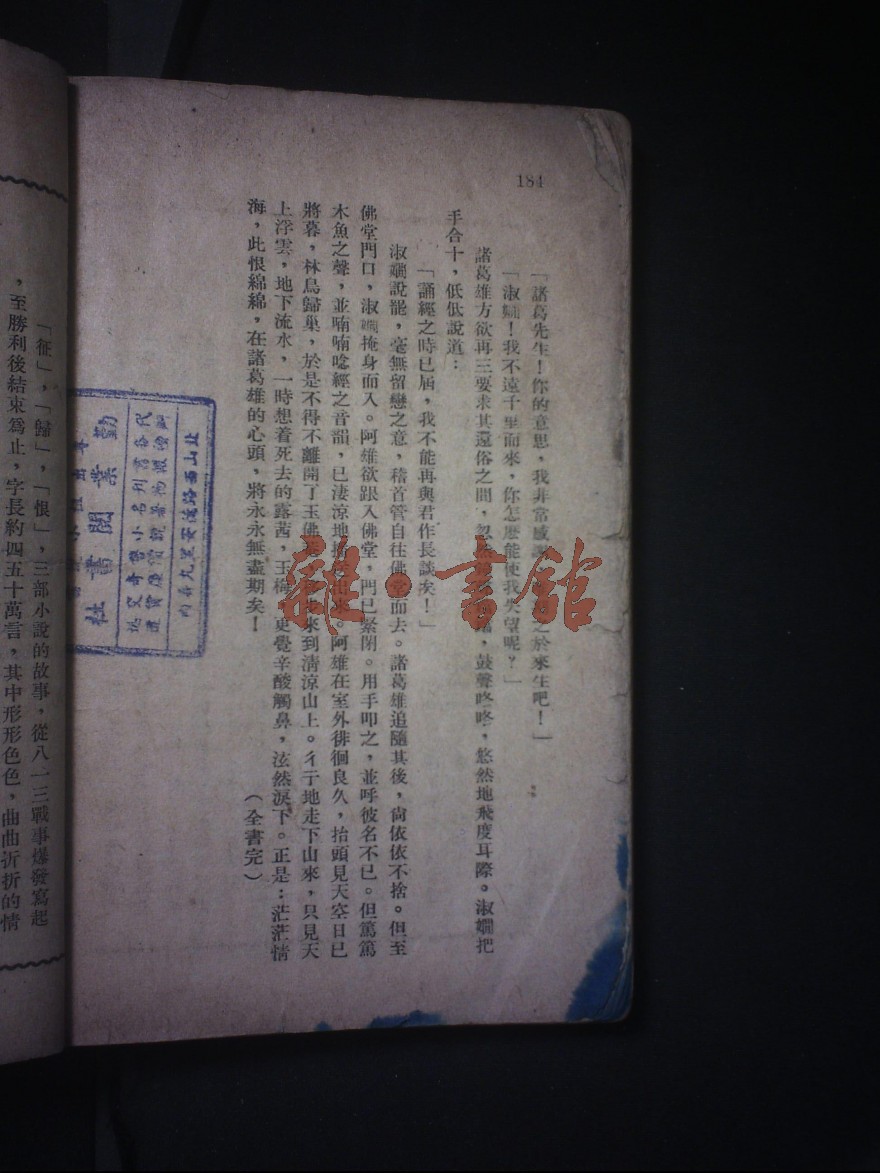 184
「諸葛先生！你的意思，我非常感謝之於來生吧！」
「淑嫻！我不遠千里而來，你怎麽能使我失望呢？」
諸葛雄方欲再三要求其還俗之間，忽鼓聲咚咚，悠然地飛度耳際。淑嫻把
手合十，低低說道：
「誦經之時已屆，我不能再與君作長談矣！」
淑嫻說罷，毫無留戀之意，稽首管自往佛堂而去。諸葛雄追隨其後，尙依依不捨。但至
佛堂門口，淑嫻掩身而入。阿雄欲跟入佛堂，門已緊閉。用手叩之，並呼彼名不已。但篤篤
木魚之聲，並喃喃唸經之音韻，已凄涼地出來。阿雄在室外徘徊良久，抬頭見天空日已
將暮，林鳥歸巢，於是不得不離開了玉佛來到清涼山上。彳亍地走下山來，只見天
上浮雲，地下流水，一時想着死去的露茜，玉梅，更覺辛酸觸鼻，泫然淚下。正是：茫茫情
海，此恨綿綿，在諸葛雄的心頭，將永永無盡期矣！
（全書完）
雜·書館
勤業閱書社
「征」，「歸」，「恨」，三部小說的故事，從八一三戰事爆發寫起
，至勝利後結束爲止，字長約四五十萬言，其中形形色色，曲曲折折的情